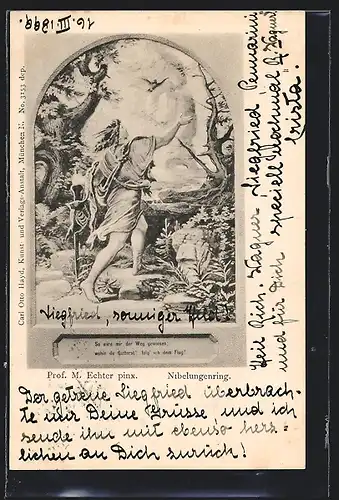 16. III. 1899.
Carl Otto Hayd, Kunst- und Verlags-Anstalt, München I. No. 3153 dep.
Siegfried, sonniger Held!
So wird mir der Weg gewiesen,
wohin du flatterst, folg' ich dem Flug!
Prof. M. Echter pinx. Nibelungenring.
Der getreue Siegfried überbrach-
te mir Deine Grüsse und ich
sende ihn mit ebenso herz-
lichen an Dich zurück!
Heil Rich. Wagner, Siegfried
und für Dich speciell Wachmal R. Wagner
Crista.